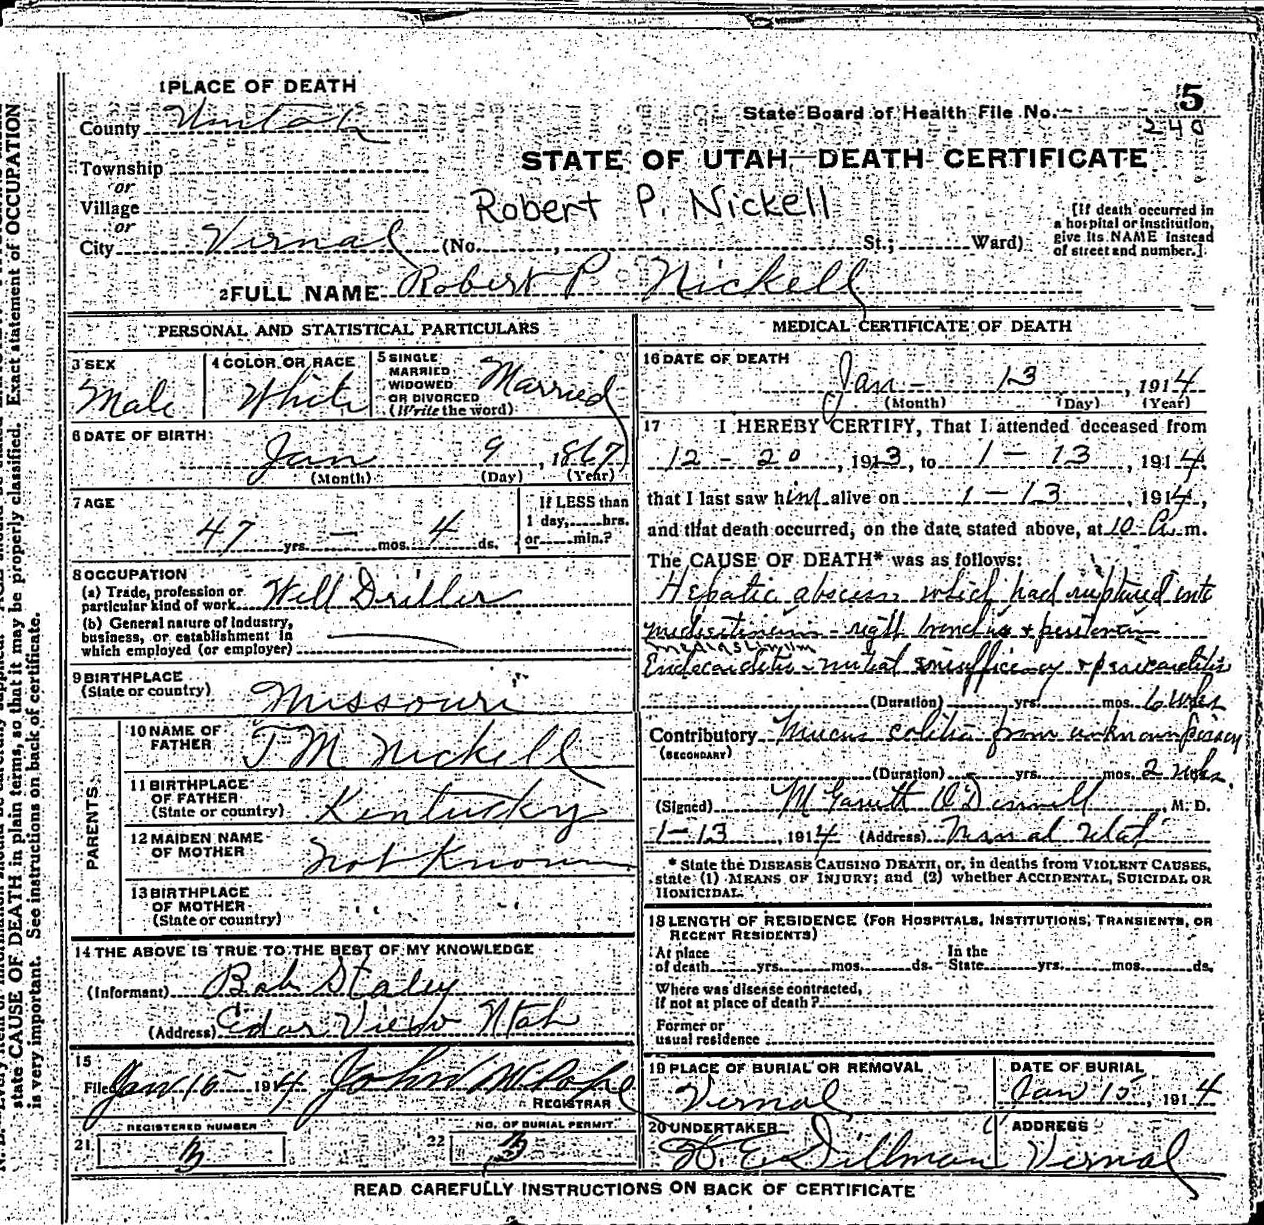 1 PLACE OF DEATH
County Uintah
Township
or
Village
or
City Vernal (No. , St.; Ward)
State Board of Health File No. 5
240
STATE OF UTAH—DEATH CERTIFICATE
Robert P. Nickell
[If death occurred in
a hospital or institution,
give its NAME instead
of street and number.]
2 FULL NAME Robert P. Nickell
PERSONAL AND STATISTICAL PARTICULARS
3 SEX
Male
4 COLOR OR RACE
White
5 SINGLE
MARRIED
WIDOWED
OR DIVORCED
(Write the word)
Married
6 DATE OF BIRTH
Jan 9, 1867
(Month) (Day) (Year)
7 AGE
47 yrs. — mos. 4 ds.
If LESS than
1 day, hrs.
or min.?
8 OCCUPATION
(a) Trade, profession or
particular kind of work Well Driller
(b) General nature of industry,
business, or establishment in
which employed (or employer)
9 BIRTHPLACE
(State or country) Missouri
PARENTS
10 NAME OF
FATHER T M Nickell
11 BIRTHPLACE
OF FATHER
(State or country) Kentucky
12 MAIDEN NAME
OF MOTHER not Known
13 BIRTHPLACE
OF MOTHER
(State or country) " "
14 THE ABOVE IS TRUE TO THE BEST OF MY KNOWLEDGE
(Informant) Bob Staley
(Address) Edar View Utah
15
Filed Jan 15 1914 John W Pope
REGISTRAR
REGISTERED NUMBER
21 3
NO. OF BURIAL PERMIT
22 3
MEDICAL CERTIFICATE OF DEATH
16 DATE OF DEATH
Jan - 13, 1914
(Month) (Day) (Year)
17 I HEREBY CERTIFY, That I attended deceased from
12 - 20, 1913, to 1 - 13, 1914,
that I last saw him alive on 1 - 13, 1914,
and that death occurred, on the date stated above, at 10 A. m.
The CAUSE OF DEATH* was as follows:
Hepatic abscess which had ruptured into
mediastinum - right bronchus + peritoneum
mediastinum
Endocarditis - mitral insufficiency + pericarditis
(Duration) yrs. mos. 6 wks
Contributory Mucus colitis from unknown
(SECONDARY)
(Duration) yrs. mos. 2 wks
(Signed) M. D.
1-13, 1914 (Address) Vernal Utah
* State the DISEASE CAUSING DEATH, or, in deaths from VIOLENT CAUSES,
state (1) MEANS OF INJURY; and (2) whether ACCIDENTAL, SUICIDAL OR
HOMICIDAL.
18 LENGTH OF RESIDENCE (FOR HOSPITALS, INSTITUTIONS, TRANSIENTS, OR
RECENT RESIDENTS)
At place
of death yrs. mos. ds.
In the
State yrs. mos. ds.
Where was disease contracted,
if not at place of death?
Former or
usual residence
19 PLACE OF BURIAL OR REMOVAL
Vernal
DATE OF BURIAL
Jan 15, 1914
20 UNDERTAKER
W. E. Dillman
ADDRESS
Vernal
READ CAREFULLY INSTRUCTIONS ON BACK OF CERTIFICATE
state CAUSE OF DEATH in plain terms, so that it may be properly classified. Exact statement of OCCUPATION
is very important. See instructions on back of certificate.